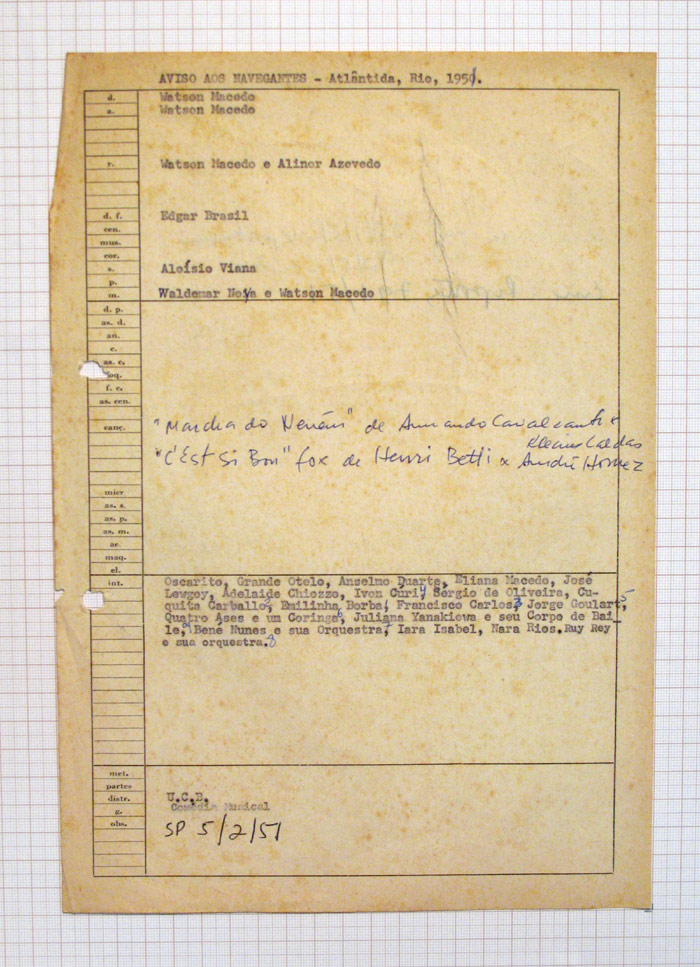 AVISO AOS NAVEGANTES - Atlântida, Rio, 1951.
d. Watson Macedo
a. Watson Macedo
r. Watson Macedo e Alinor Azevedo
d. f. Edgar Brasil
cen.
mus.
cor.
s. Aloísio Viana
p.
m. Waldemar Noya e Watson Macedo
d. p.
as. d.
an.
c.
as. c.
loq.
f. c.
as. cen.
canç. "Marcha do Neném" de Armando Cavalcanti e
Klecius Caldas
"C'Est Si Bon" fox de Henri Betti e André Hornez
micr
as. s.
as. p.
as. m.
ar.
maq.
el.
int. Oscarito, Grande Otelo, Anselmo Duarte, Eliana Macedo, José
Lewgoy, Adelaide Chiozzo, Ivon Curi, Sérgio de Oliveira, Cu-
quita Carballo, Emilinha Borba, Francisco Carlos, Jorge Goulart,
Quatro Ases e um Coringa, Juliana Yanakiewa e seu Corpo de Bai_
le, Bené Nunes e sua Orquestra, Iara Isabel, Nara Rios. Ruy Rey
e sua orquestra.
met.
partes
distr. U.C.B.
g. Comédia Musical
obs. SP 5/2/51